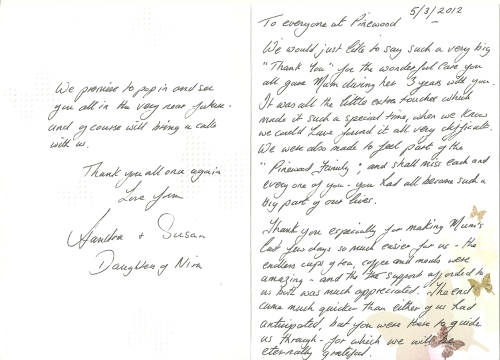 5/3/2012
To everyone at Pinewood
We would just like to say such a very big
"Thank You" for the wonderful care you
all gave Mum during her 3 years with you.
It was all the little extra touches which
made it such a special time, when we know
we could have found it all very difficult.
We were also made to feel part of the
"Pinewood Family", and shall miss each and
every one of you - you had all become such a
big part of our lives.
Thank you especially for making Mum's
last few days so much easier for us - the
endless cups of tea, coffee and meals were
amazing - and the the support afforded to
us both was much appreciated. The end
came much quicker than either of us had
anticipated, but you were there to guide
us through - for which we will be
eternally grateful.
We promise to pop in and see
you all in the very near future -
and of course will bring a cake
with us.
Thank you all once again
Love from
Sandra + Susan
Daughters of Nina